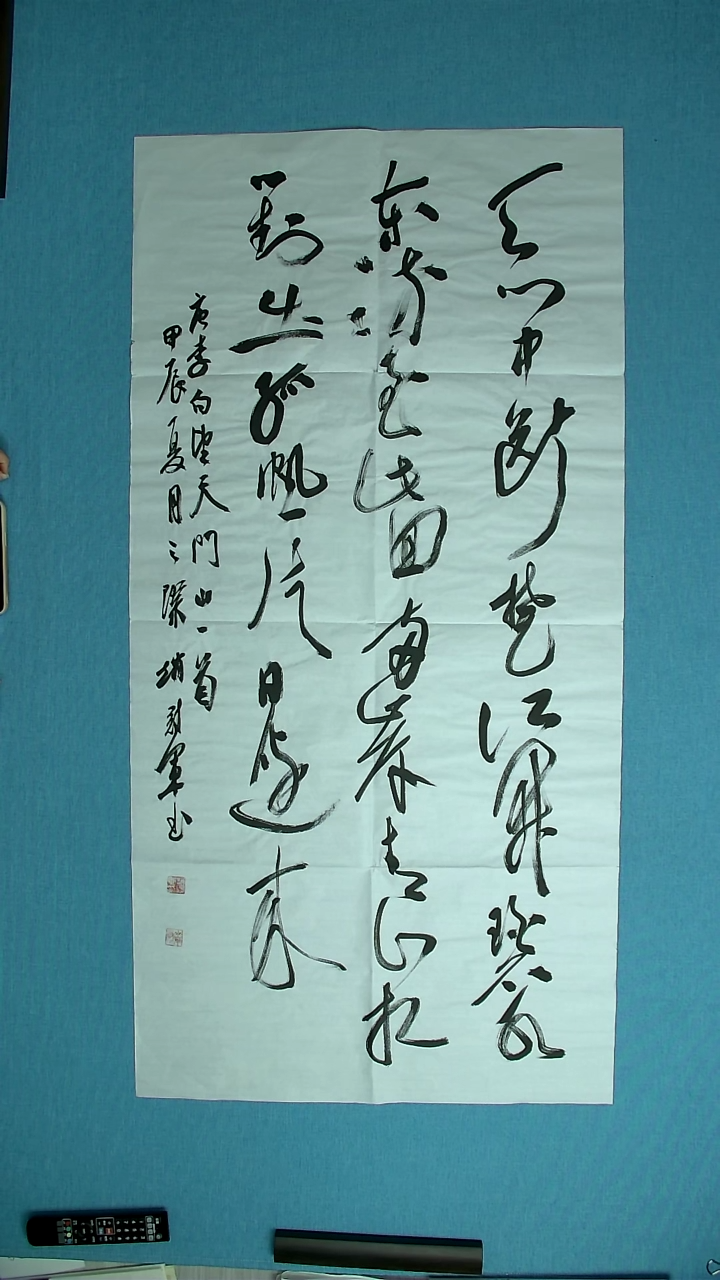 天門中斷楚江開碧水
東流至此回兩岸青山相
對出孤帆一片日邊來
唐李白望天門山一首
甲辰夏月之 軍書